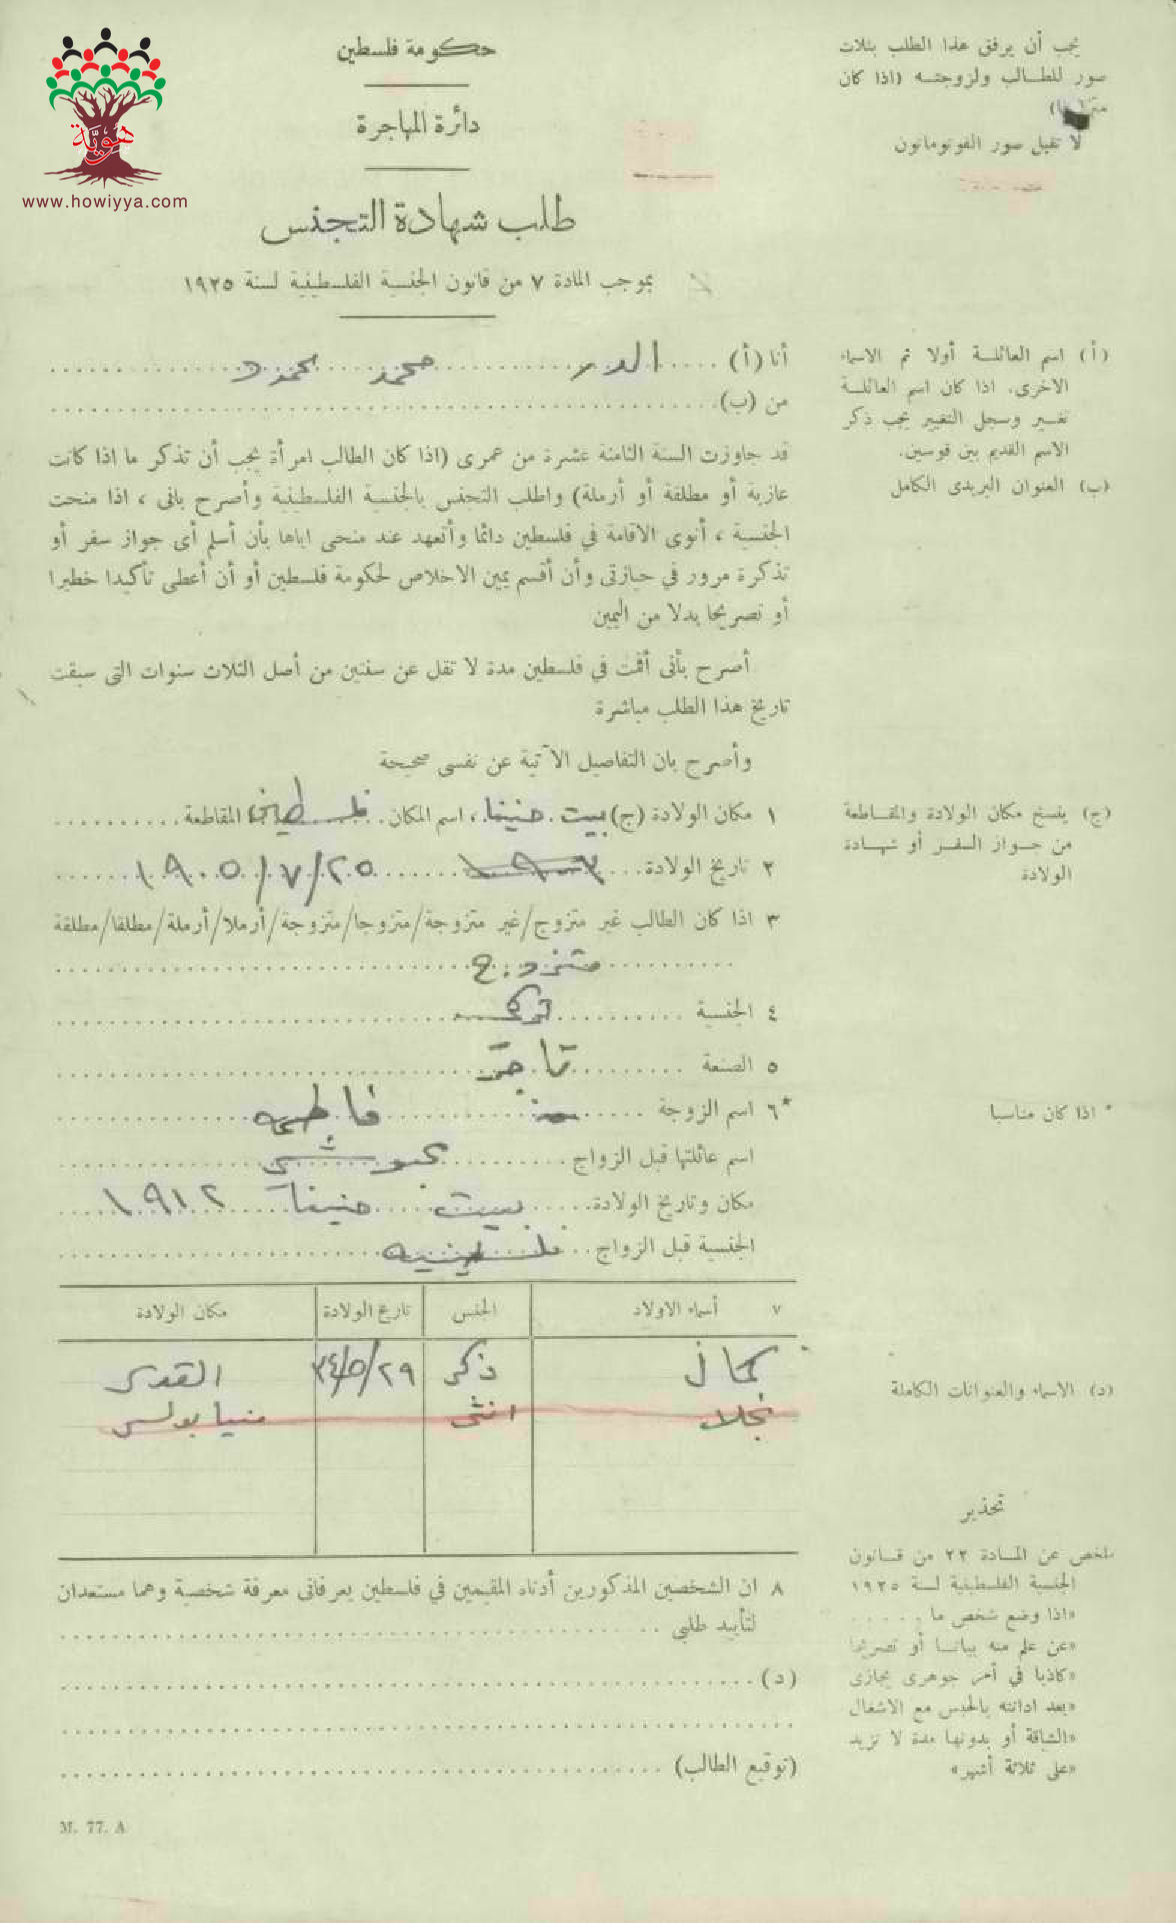 هويَّة
www.howiyya.com
حكومة فلسطين
دائرة المهاجرة
طلب شهادة التجنس
بموجب المادة ٧ من قانون الجنسية الفلسطينية لسنة ١٩٢٥
يجب أن يرفق هذا الطلب بثلاث
صور للطالب ولزوجته (اذا كان
لا تقبل صور الفوتوماتون
أنا (أ) الدر محمد محمود
من (ب)
قد جاوزت السنة الثامنة عشرة من عمرى (اذا كان الطالب امرأة يجب أن تذكر ما اذا كانت
عازبة أو مطلقة أو أرملة) واطلب التجنس بالجنسية الفلسطينية وأصرح بانى ، اذا منحت
الجنسية ، أنوى الاقامة في فلسطين دائما وأتعهد عند منحى اياها بأن أسلم أى جواز سفر أو
تذكرة مرور في حيازتى وأن أقسم يمين الاخلاص لحكومة فلسطين أو أن أعطى تأكيدا خطيرا
أو تصريحا بدلا من اليمين
أصرح بأنى أقمت في فلسطين مدة لا تقل عن سنتين من أصل الثلاث سنوات التى سبقت
تاريخ هذا الطلب مباشرة
وأصرح بان التفاصيل الآتية عن نفسى صحيحة
(أ) اسم العائلة أولا ثم الاسماء
الاخرى. اذا كان اسم العائلة
تغير وسجل التغيير يجب ذكر
الاسم القديم بين قوسين.
(ب) العنوان البريدى الكامل
١ مكان الولادة (ج) بيت حنينا، اسم المكان فلسطين المقاطعة
٢ تاريخ الولادة ١٩٠٣ ٢٥/٧/١٩٠٥
٣ اذا كان الطالب غير متزوج/غير متزوجة/متزوجا/متزوجة/أرملا/أرملة/مطلقا/مطلقة
متزوج
٤ الجنسية تركي
٥ الصنعة تاجر
*٦ اسم الزوجة فاطمه
اسم عائلتها قبل الزواج
مكان وتاريخ الولادة بيت حنينا ١٩١٢
الجنسية قبل الزواج فلسطينيه
(ج) ينسخ مكان الولادة والمقاطعة
من جواز السفر أو شهادة
الولادة
* اذا كان مناسبا
٧ أسماء الاولاد الجنس تاريخ الولادة مكان الولادة
كمال ذكر ٢٩/٥/٣٤ القدس
نجلا انثى منيابولس
(د) الاسماء والعنوانات الكاملة
٨ ان الشخصين المذكورين أدناه المقيمين في فلسطين يعرفانى معرفة شخصية وهما مستعدان
لتأييد طلبى
(د)
(توقيع الطالب)
تحذير
ملخص عن المادة ٢٢ من قانون
الجنسية الفلسطينية لسنة ١٩٢٥
«اذا وضع شخص ما
«عن علم منه بيانا أو تصريحا
«كاذبا في أمر جوهرى يجازى
«بعد ادانته بالحبس مع الاشغال
«الشاقة أو بدونها مدة لا تزيد
«على ثلاثة أشهر»
M. 77. A